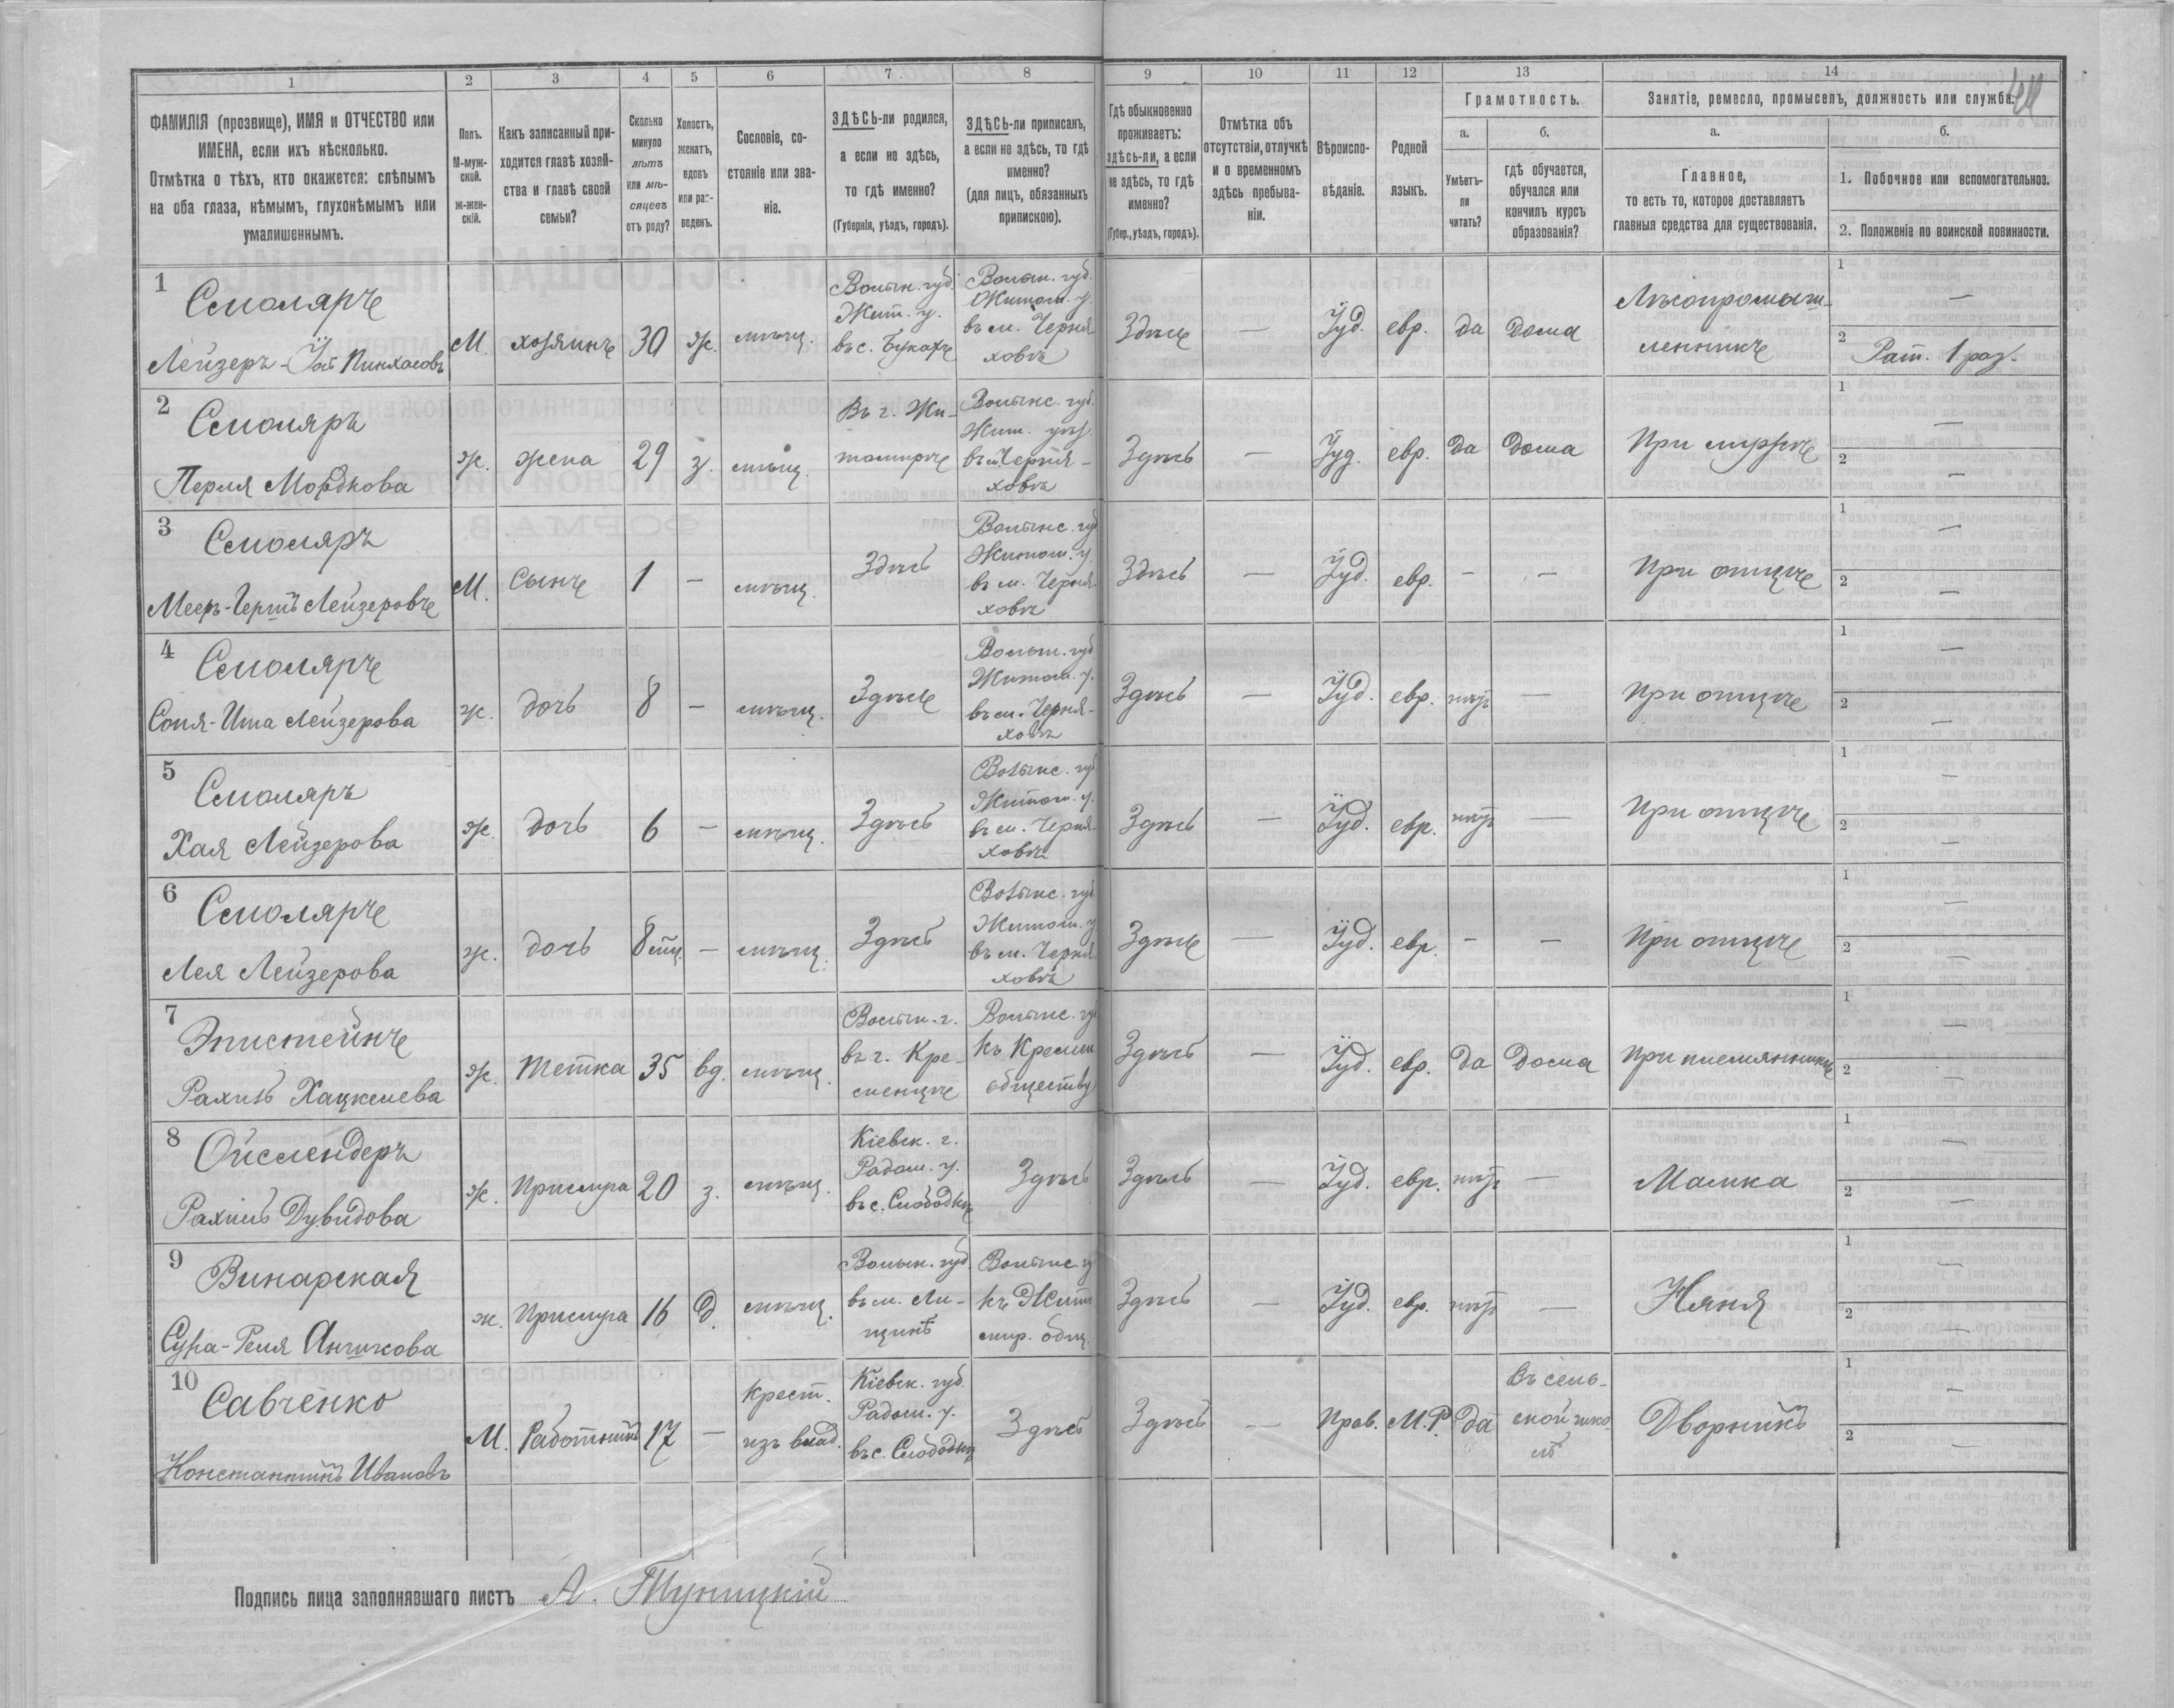 1 2 3 4 5 6 7 8 9 10 11 12 13 14
ФАМИЛІЯ (прозвище), ИМЯ и ОТЧЕСТВО или
ИМЕНА, если ихъ нѣсколько.
Отмѣтка о тѣхъ, кто окажется: слѣпымъ
на оба глаза, нѣмымъ, глухонѣмымъ или
умалишеннымъ.
Полъ.
М-муж-
ской.
ж-жен-
скій.
Какъ записанный при-
ходится главѣ хозяй-
ства и главѣ своей
семьи?
Сколько
минуло
лѣтъ
или мѣ-
сяцевъ
отъ роду?
Холостъ,
женатъ,
вдовъ
или раз-
веденъ.
Сословіе, со-
стояніе или зва-
ніе.
ЗДѢСЬ-ли родился,
а если не здѣсь,
то гдѣ именно?
(Губернія, уѣздъ, городъ).
ЗДѢСЬ-ли приписанъ,
а если не здѣсь, то гдѣ
именно?
(для лицъ, обязанныхъ
припискою).
Гдѣ обыкновенно
проживаетъ:
здѣсь-ли, а если
не здѣсь, то гдѣ
именно?
(Губер., уѣздъ, городъ).
Отмѣтка объ
отсутствіи, отлучкѣ
и о временномъ
здѣсь пребыва-
ніи.
Вѣроиспо-
вѣданіе.
Родной
языкъ.
Грамотность.
а.
Умѣетъ-
ли
читать?
б.
гдѣ обучается,
обучался или
кончилъ курсъ
образованія?
Занятіе, ремесло, промыселъ, должность или служба.
а.
Главное,
то есть то, которое доставляетъ
главныя средства для существованія.
б.
1. Побочное или вспомогательное.
2. Положеніе по воинской повинности.
1
Смоляръ
Лейзеръ- Пинхасовъ
М.
хозяинъ
30
ж.
мѣщ.
Волын. губ.
Жит. у.
въ с. Букахъ
Волын. губ.
Житом. у.
въ м. Черня
ховѣ
Здѣсь
—
Іуд.
евр.
да
Дома
Лѣсопромыш-
ленникъ
1 —
2 Рат. 1 раз.
2
Смоляръ
Перля Мордкова
ж.
жена
29
з.
мѣщ.
Въ г. Жи-
томирѣ
Волынс. губ.
Жит. уѣз.
въ м. Черня-
ховѣ
Здѣсь
—
Іуд.
евр.
да
Дома
При мужѣ
1 —
2 —
3
Смоляръ
Мееръ-Гершъ Лейзеровъ
М.
Сынъ
1
—
мѣщ.
Здѣсь
Волынс. губ
Житом. у.
въ м. Черня-
ховѣ
Здѣсь
—
Іуд.
евр.
—
—
При отцѣ
1 —
2 —
4
Смоляръ
Соня-Ита Лейзерова
ж.
дочь
8
—
мѣщ.
Здѣсь
Волын. губ
Житом. у.
въ м. Черня-
ховѣ
Здѣсь
—
Іуд.
евр.
нѣтъ
—
При отцѣ
1 —
2 —
5
Смоляръ
Хая Лейзерова
ж.
дочь
6
—
мѣщ.
Здѣсь
Волынс. губ
Житом. у.
въ м. Черня-
ховѣ
Здѣсь
—
Іуд.
евр.
нѣтъ
—
При отцѣ
1 —
2 —
6
Смоляръ
Лея Лейзерова
ж.
дочь
8 мц
—
мѣщ.
Здѣсь
Волынс. губ.
Житом. у
въ м. Черня-
ховѣ
Здѣсь
—
Іуд.
евр.
—
—
При отцѣ
1 —
2 —
7
Эпштейнъ
Рахиль Хацкелева
ж.
Тетка
35
вд.
мѣщ.
Волын. г.
въ г. Кре-
менцѣ
Волынс. губ
къ Кремен
обществу
Здѣсь
—
Іуд.
евр.
да
Дома
При племянникѣ
1 —
2 —
8
Ойслендеръ
Рахиль Дувидова
ж.
Прислуга
20
з.
мѣщ.
Кіевск. г.
Радом. у.
въ с. Слободкѣ
Здѣсь
Здѣсь
—
Іуд.
евр.
нѣтъ
—
Мамка
1 —
2 —
9
Винарская
Сура-Реля Аншикова
ж.
Прислуга
16
д.
мѣщ.
Волын. губ.
въ м. Ли-
щинѣ
Волынс. г
къ Жито
мир. общ.
Здѣсь
—
Іуд.
евр.
нѣтъ
—
Няня
1 —
2 —
10
Савченко
Константинъ Ивановъ
М.
Работникъ
17
—
крест.
изъ влад.
Кіевск. губ.
Радом. у.
въ с. Слободкѣ
Здѣсь
Здѣсь
—
Прав.
М.Р.
да
въ сель-
ской шко
лѣ
Дворникъ
1 —
2 —
Подпись лица заполнявшаго листъ А. Туницкій